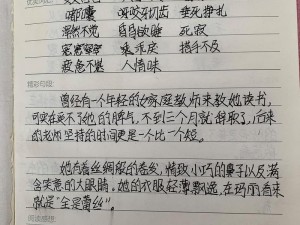 嘟囔 咬牙切齿 垂死挣扎
果然不凡 自身收睡 死寂
窸窸窣窣 乘乖戾 措手不及
疲惫不堪 人情味
精彩句段
曾经有一个年轻的女家庭教师来教她读书,
可实在受不了她的脾气,不到三个月就辞职了,后来
的老师坚持的时间更是一个比一个短。
她有着丝绸般的卷发,精致小巧的鼻子以及满
含笑意的大眼睛。她的衣服轻薄飘逸,在玛丽看来
就是"全是蕾丝"。
阅读感想